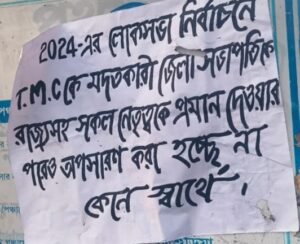 2024-এর লোকসভা নির্বাচনে
T.M.C কে মদতকারী জেলা সভাপতিকে
রাজ্যসহ সকল নেতৃত্বকে প্রমান দেওয়ার
পরেও অপসারণ করা হচ্ছে না
কেন স্বার্থে।